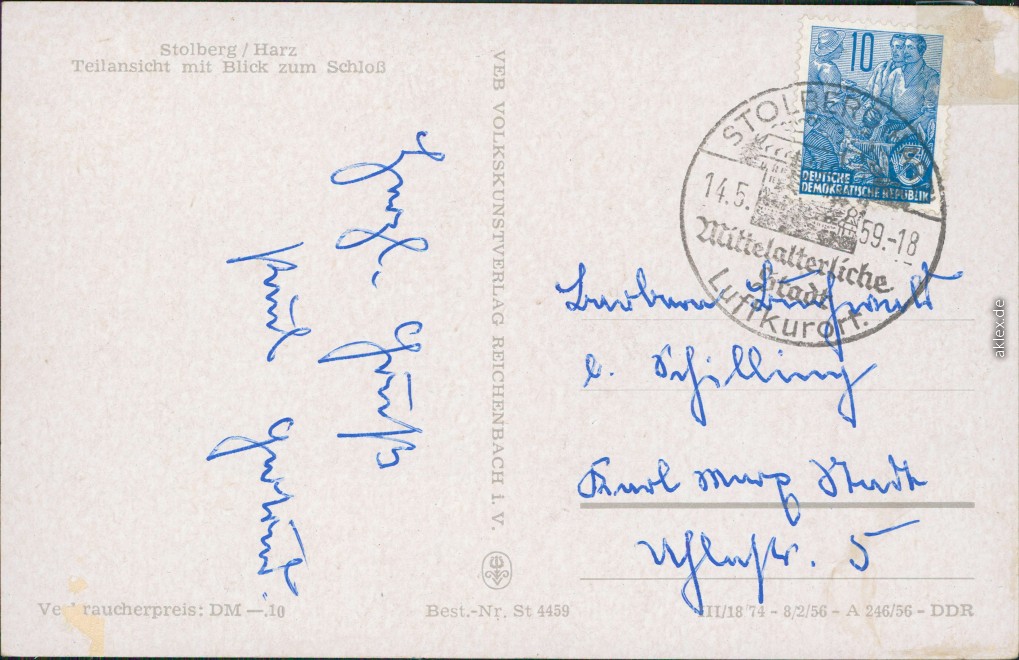 Stolberg / Harz
Teilansicht mit Blick zum Schloß
VEB VOLKSKUNSTVERLAG REICHENBACH I. V.
10
DEUTSCHE
DEMOKRATISCHE REPUBLIK
STOLBERG
14.5. 59.-18
Mittelalterliche
Stadt
Luftkurort.
Herzl. Grüße
Barbara
b. Schilling
Karl Marx Stadt
5
Verbraucherpreis: DM —.10
Best.-Nr. St 4459
III/18 74 - 8/2/56 - A 246/56 - DDR
aklex.de